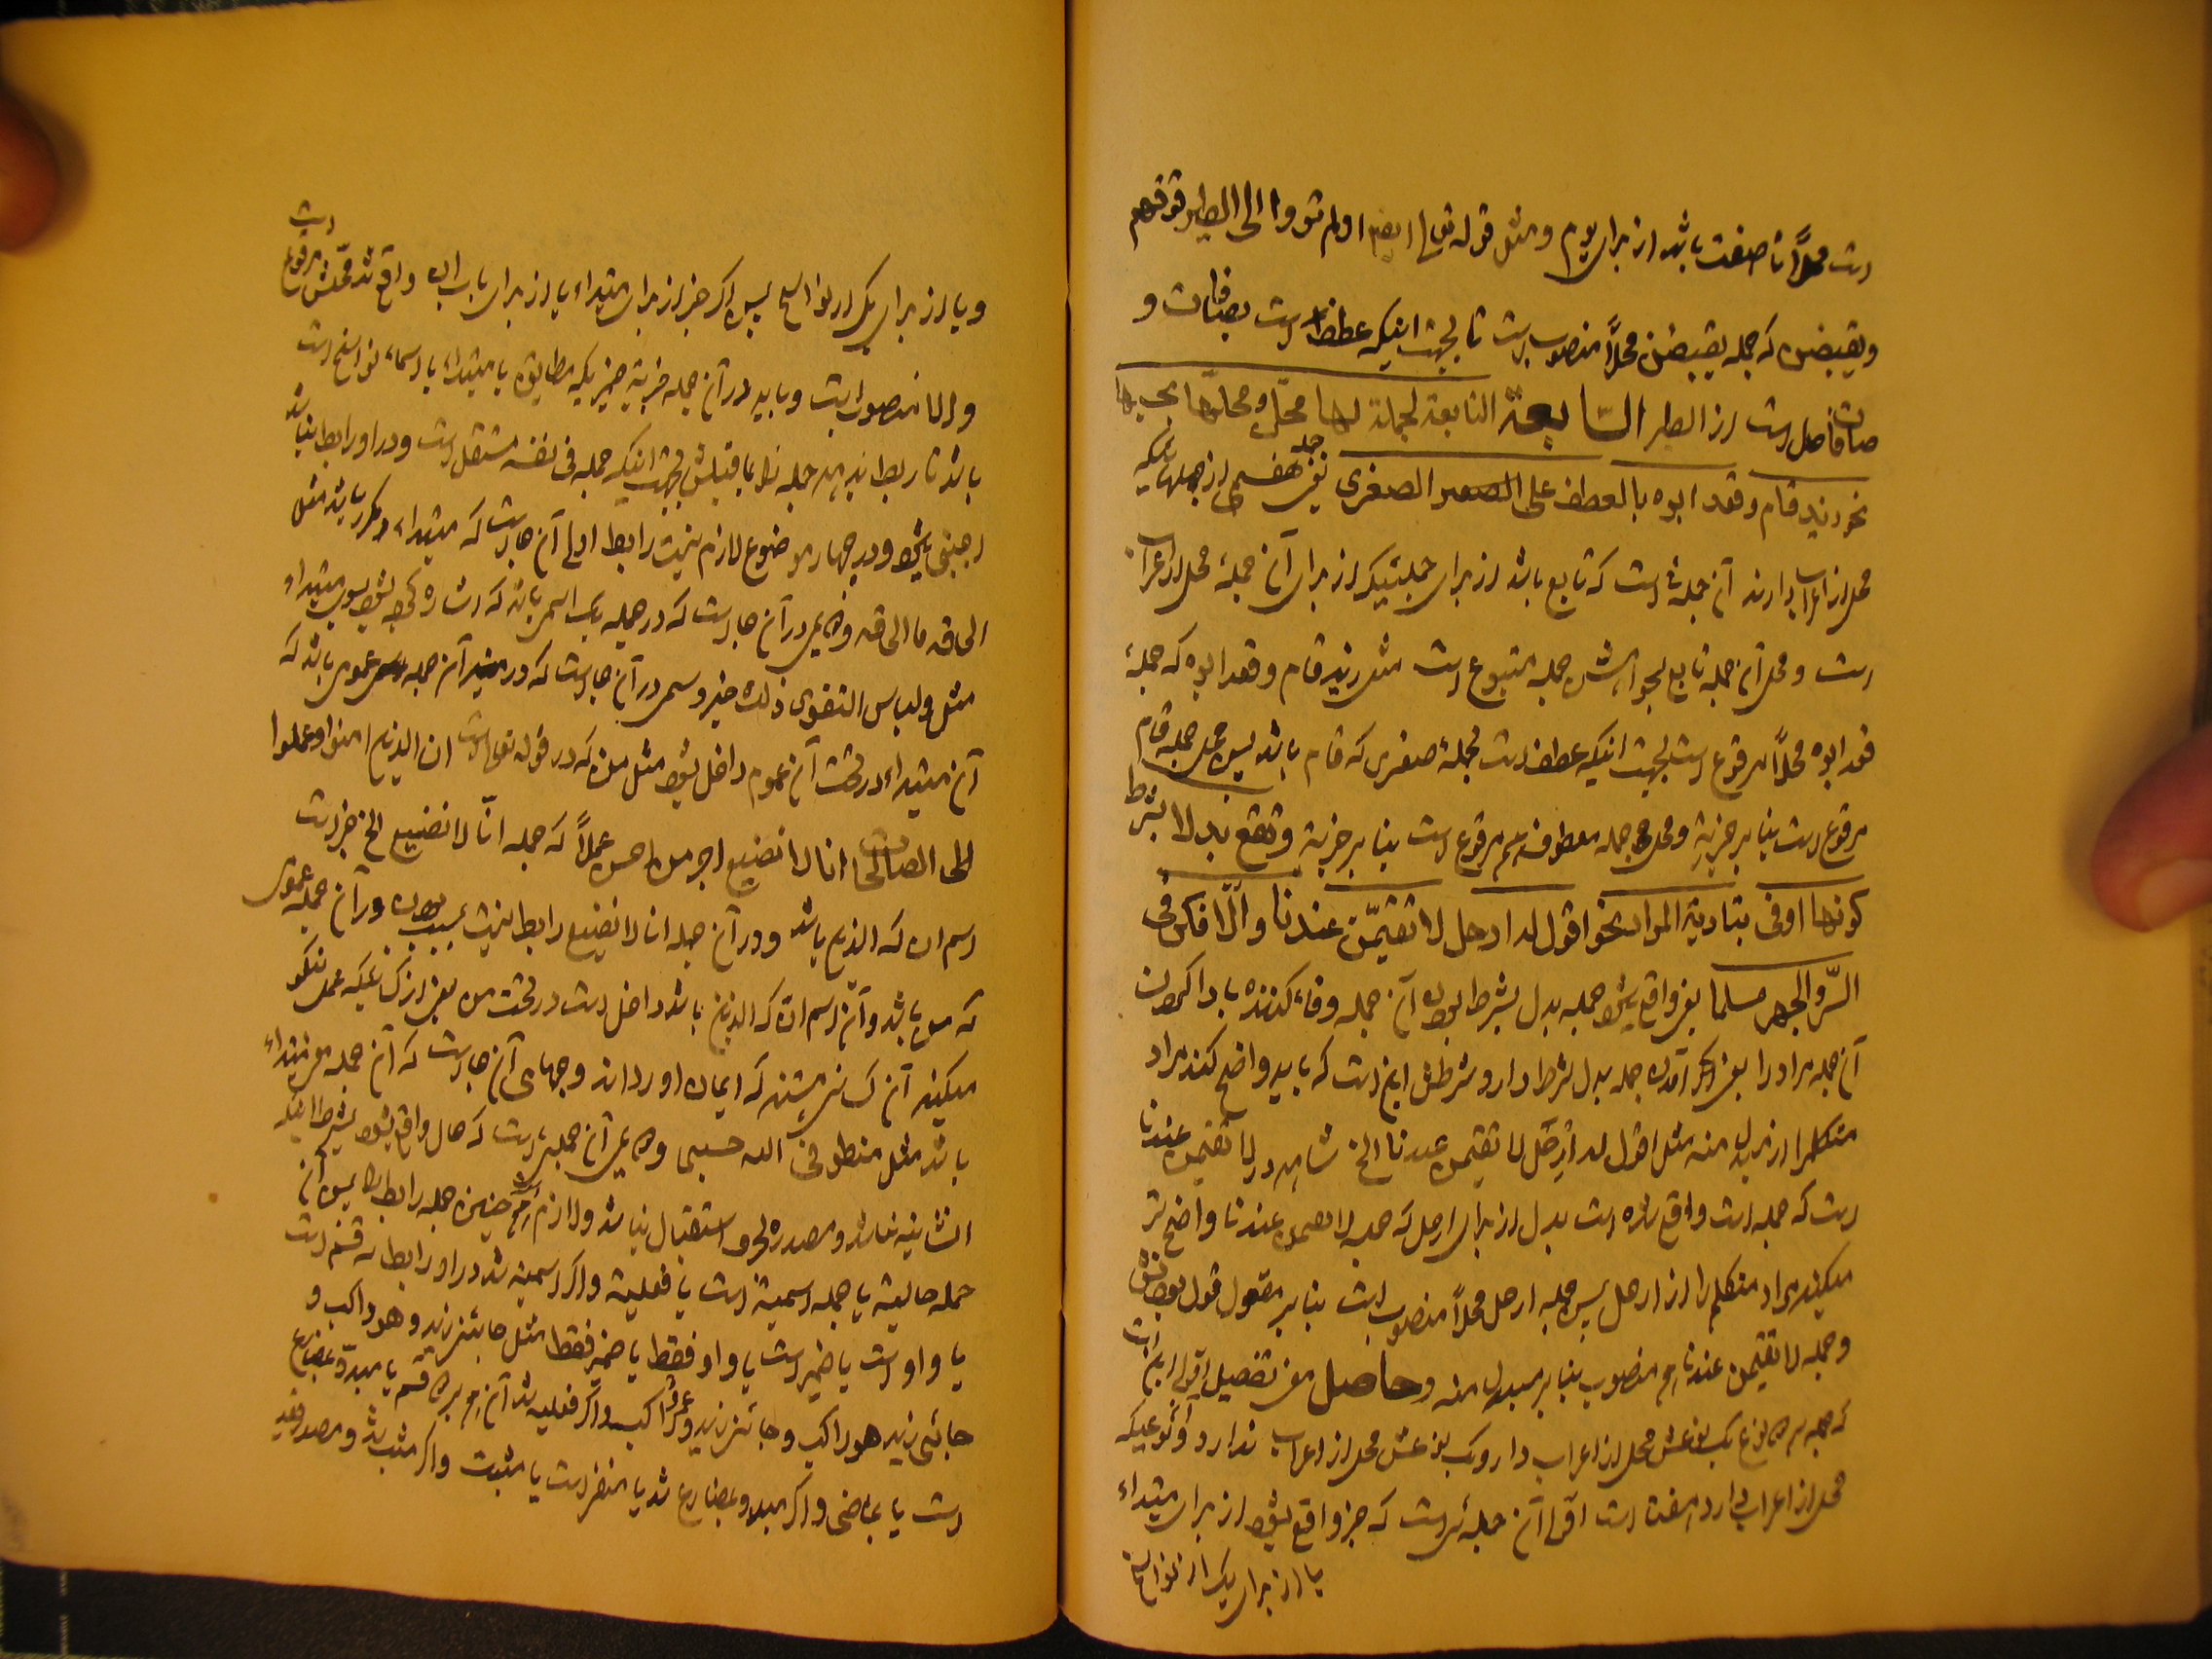 است محلاً تا صفت باشد از برای یوم و مثل قوله تعالی ایضا اولم تروا الی الطیر فوقهم
و یقبضن که جمله یقبضن محلاً منصوب است تا بجهت اینکه عطف است بصافات و
صافات حاصل است از الطیر السّابعة التابعة لجملة لها محلّ و محلّها بحسبها
نحو زید قام و قعد ابوه بالعطف علی الصغری یعنی جمله هفتمی از جملهائیکه
محل از اعراب دارند آن جمله است که تابع باشد از برای جملۀ که از برای آن جملۀ محل از اعراب
است و محل آن جمله تابع جمله متبوع است مثل زید قام و قعد ابوه که جملۀ
قعد ابوه محلاً مرفوع است بجهت اینکه عطف است بجملۀ صغری که قام باشد پس محل جمله قام
مرفوع است بنابر خبریة و محل جمله معطوف هم مرفوع است بنابر خبریة و تقع بدلا بشرط
کونها اوفی بتادیة المراد نحو اقول له ارحل لا تقیمنّ عندنا والّا فکن فی
السّر والجهر مسلما یعنی واقع میشود جمله بدل بشرط بودن آن جمله وفاء کننده باداکردن
آن جمله مراد را یعنی جمله بدل شرط دارد و شرطش این است که باید واضح کند مراد
متکلم را از مبدل منه مثل اقول له ارحل لا تقیمن عندنا الخ شاهد در لا تقیمن عندنا
است که جمله است واقع شده است بدل از برای ارحل که جمله لا تقیمن عندنا واضح تر
میکند مراد متکلم را از ارحل پس جمله ارحل محلاً منصوب است بنابر مقول قول بودنش
و جمله لا تقیمن عندنا هم منصوب بنابر مبدل منه و حاصل من تفصیل اقوال این است
که جمله بر دو نوع یک نوعش محل از اعراب دارد و یک نوعش محل از اعراب ندارد و آن نوعیکه
محل از اعراب دارد هفت است اول آن جمله است که خبر واقع شود از برای مبتداء
یا از برای یک از نواسخ
و یا از برای یک از نواسخ پس اگر خبر از برای مبتداء یا از برای باب ان واقع شد محلش مرفوع است
و الا منصوب است و باید در آن جمله خبریة ضمیریکه مطابق با مبتداء یا باسماء نواسخ است
باشد تا ربط بدهد جمله را بماقبلش بجهت اینکه جمله فی نفسه مستقل است و در او رابط نباشد
اجنبی میشود و در چهار موضوع لازم نیست رابط اول آن جا است که مبتداء مکرر باشد مثل
الحاقه ما الحاقه و دویمی در آن جا است که در جمله یک اسمی باشد که اشاره کرده شود بسوی مبتداء
مثل و لباس التقوی ذلک خیر و سیمی در آن جا است که در آن جمله عمومی باشد که
آن مبتداء در تحت آن عموم داخل شود مثل من که در قوله تعالی است ان الذین امنوا و عملوا
الصالحات انا لا نضیع اجر من احسن عملاً که جمله انّا لا نضیع الخ خبر است
اسم ان که الذین باشد و در آن جمله انا لا نضیع رابط نیست بسبب بودن در آن جمله عمومی
که من باشد و آن اسم ان که الذین باشد داخل است در تحت من یعنی از کسانیکه عمل نیکو
میکنند آن کسانی هستند که ایمان اورداند و چهارمی آن جا است که آن جمله عین مبتداء
باشد مثل منطوقی الله حسبی و دویمی آن جمله است که حال واقع شود بشرط اینکه
انشائیه نباشد و مصدره بحرف استقبال نباشد و لازم است در این جمله رابط پس آن
جمله حالیه یا جمله اسمیة است یا فعلیة و اگر اسمیه شد در او رابط سه قسم است
یا واو است یا ضمیر است یا واو فقط یا ضمیر فقط مثل جائنی زید و هو راکب و
جائنی زید هو راکب و جائنی زید و عمرو راکب و اگر فعلیه شد آن هم بر دو قسم یا مبدو بمضارع
است یا بماضی و اگر مبدو بمضارع شد یا منفی است یا مثبت و اگر مثبت شد و مصدر بقد